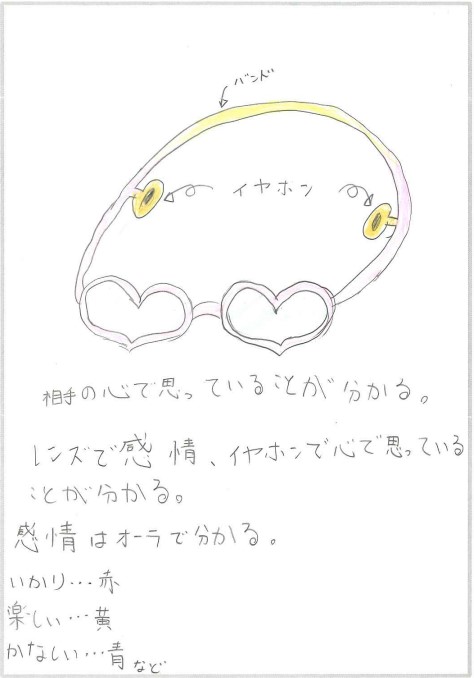 バンド
イヤホン
相手の心で思っていることが分かる。
レンズで感情、イヤホンで心で思っている
ことが分かる。
感情はオーラで分かる。
いかり…赤
楽しい…黄
かなしい…青など